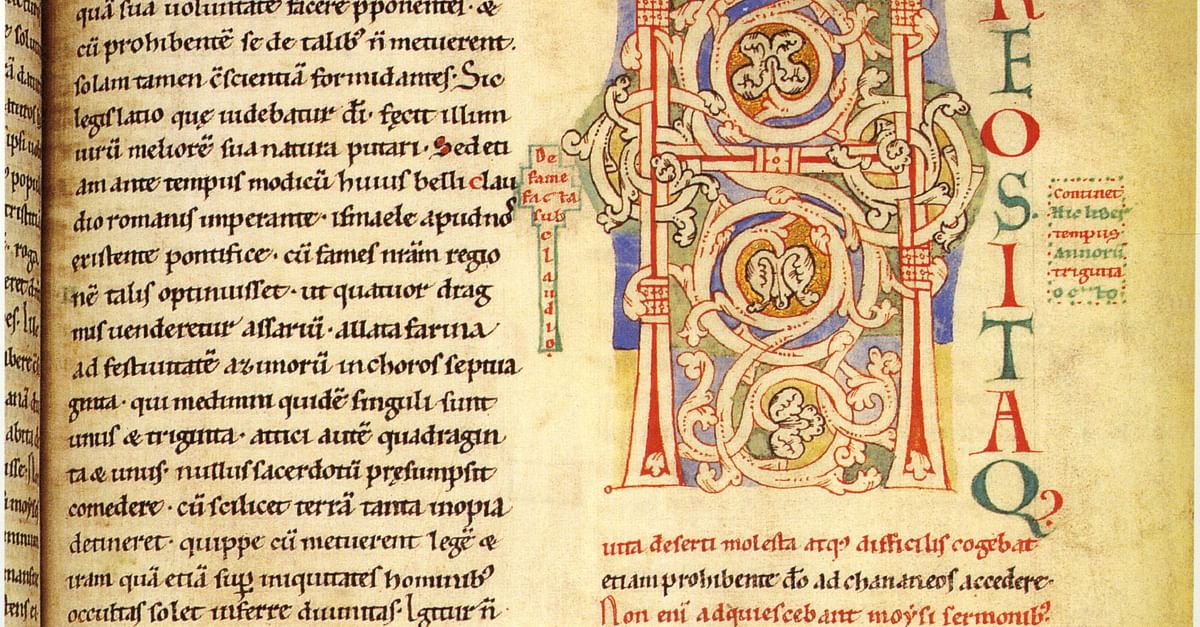 quā sua voluntate facere pponentes· &
cū prohibentē se de talib; n̄ metuerent.
solam tamen c̄scientiā formidantes· Sic
legislatio quę uidebatur dī· fęcit illum
uirū meliorē sua natura putari· Sed eti
am ante tempus modicū huius belli clau
dio romanis imperante· ismaele apud nos
existente pontifice· cū fames nrām regio
nē talis optinuisset· ut quatuor drag
mis uenderetur assariū· allata farina
ad festiuitatē azimorū in choros septua
ginta· qui medimni quidē singuli sunt
unus & triginta· attici autē quadragin
ta & unus· nullus sacerdotū pręsumpsit
comedere· cū scilicet terrā tanta inopia
detineret· quippe cū metuerent legē &
iram quā etiā sup iniquitates hominib;
occultas solet inferre diuinitas· Igitur n̄
De
fame
facta
sub
claudio.
H
REOSITAQ;
Continet
hic liber
tempus
annorū
triginta
octo
uita deserti molesta atq; difficilis cogebat
etiam prohibente dō ad chananeos accedere·
Non enī adquiescebant moysi sermonib;